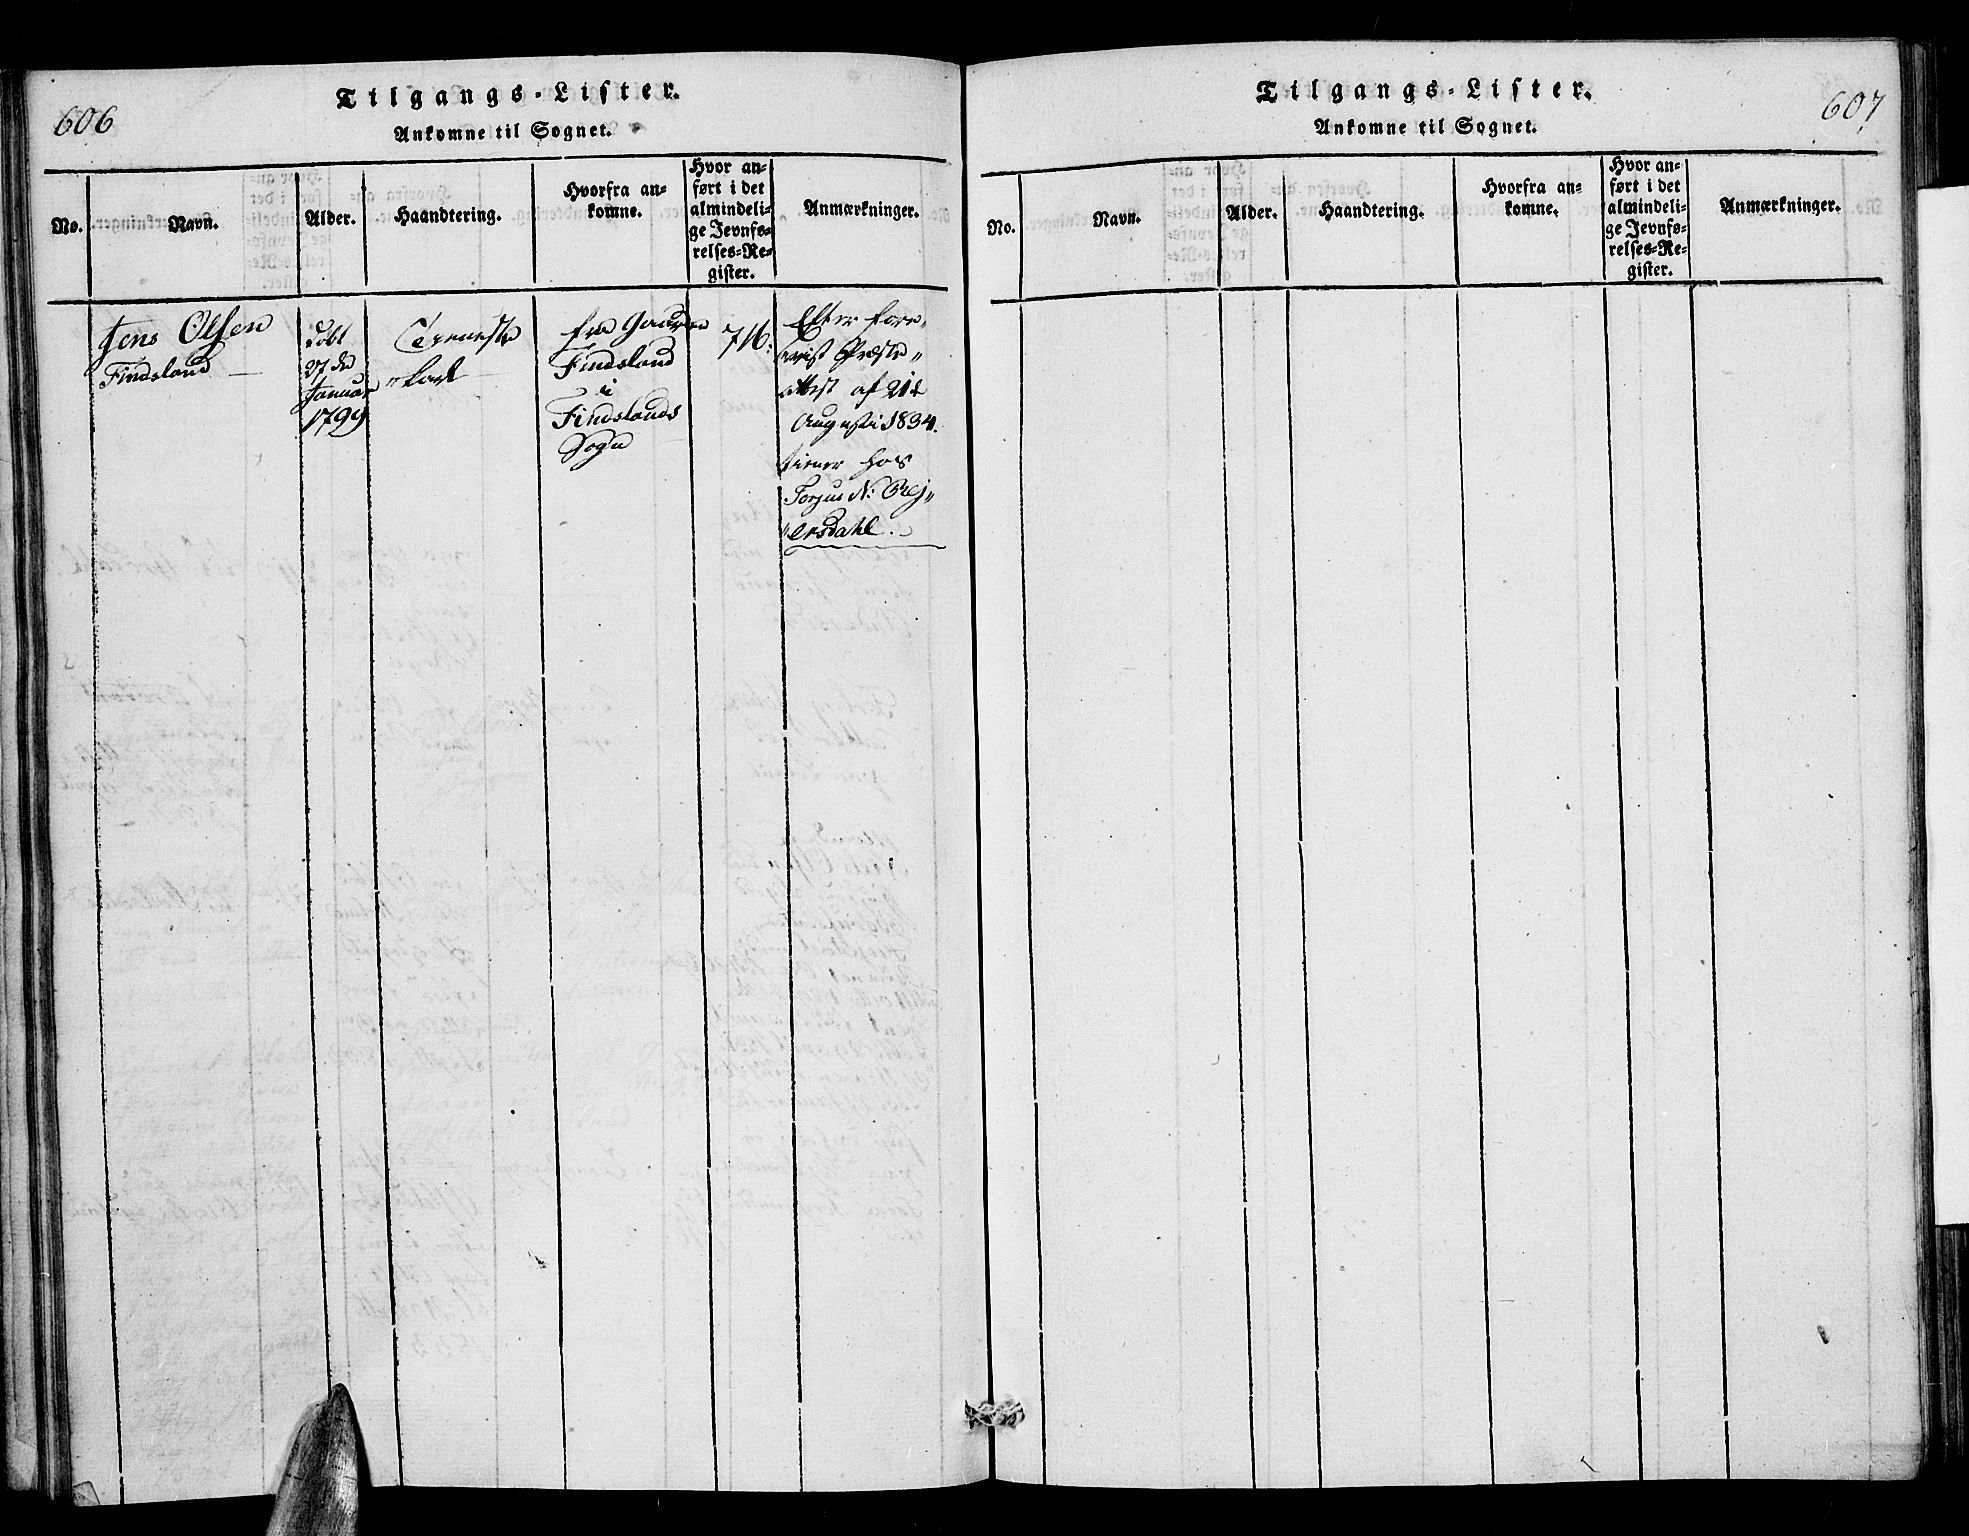 606
Tilgangs-Lister.
Ankomne til Sognet.
No.
Navn.
Alder.
Haandtering.
Hvorfra an-
komne.
Hvor an-
ført i det
almindeli-
ge Jevnfø-
relses-Re-
gister.
Anmærkninger.
Jens Olsen
Findsland
døbt
27de
Januar
1799
Tieneste
karl
fra Gaarden
Findsland
i
Findslands
Sogn
716.
Efter fore-
viist Præste-
attest af 21de
August 1834.
tiener hos
Torjus N:
ersdahl.
607
Tilgangs-Lister.
Ankomne til Sognet.
No.
Navn.
Alder.
Haandtering.
Hvorfra an-
komne.
Hvor an-
ført i det
almindeli-
ge Jevnfø-
relses-Re-
gister.
Anmærkninger.